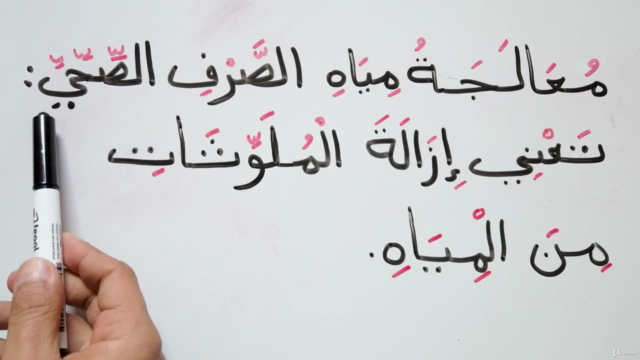 مُعَالَجَةُ مِيَاهِ الصَّرْفِ الصِّحِّيِّ:
تَعْنِي إِزَالَةَ الْمُلَوِّثَاتِ
مِنَ الْمِيَاهِ.